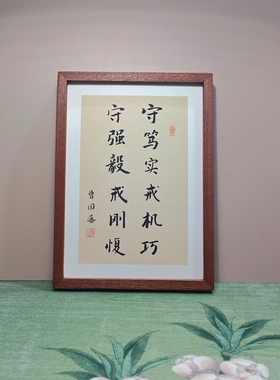 守笃实戒机巧
守强毅戒刚愎
曾国藩